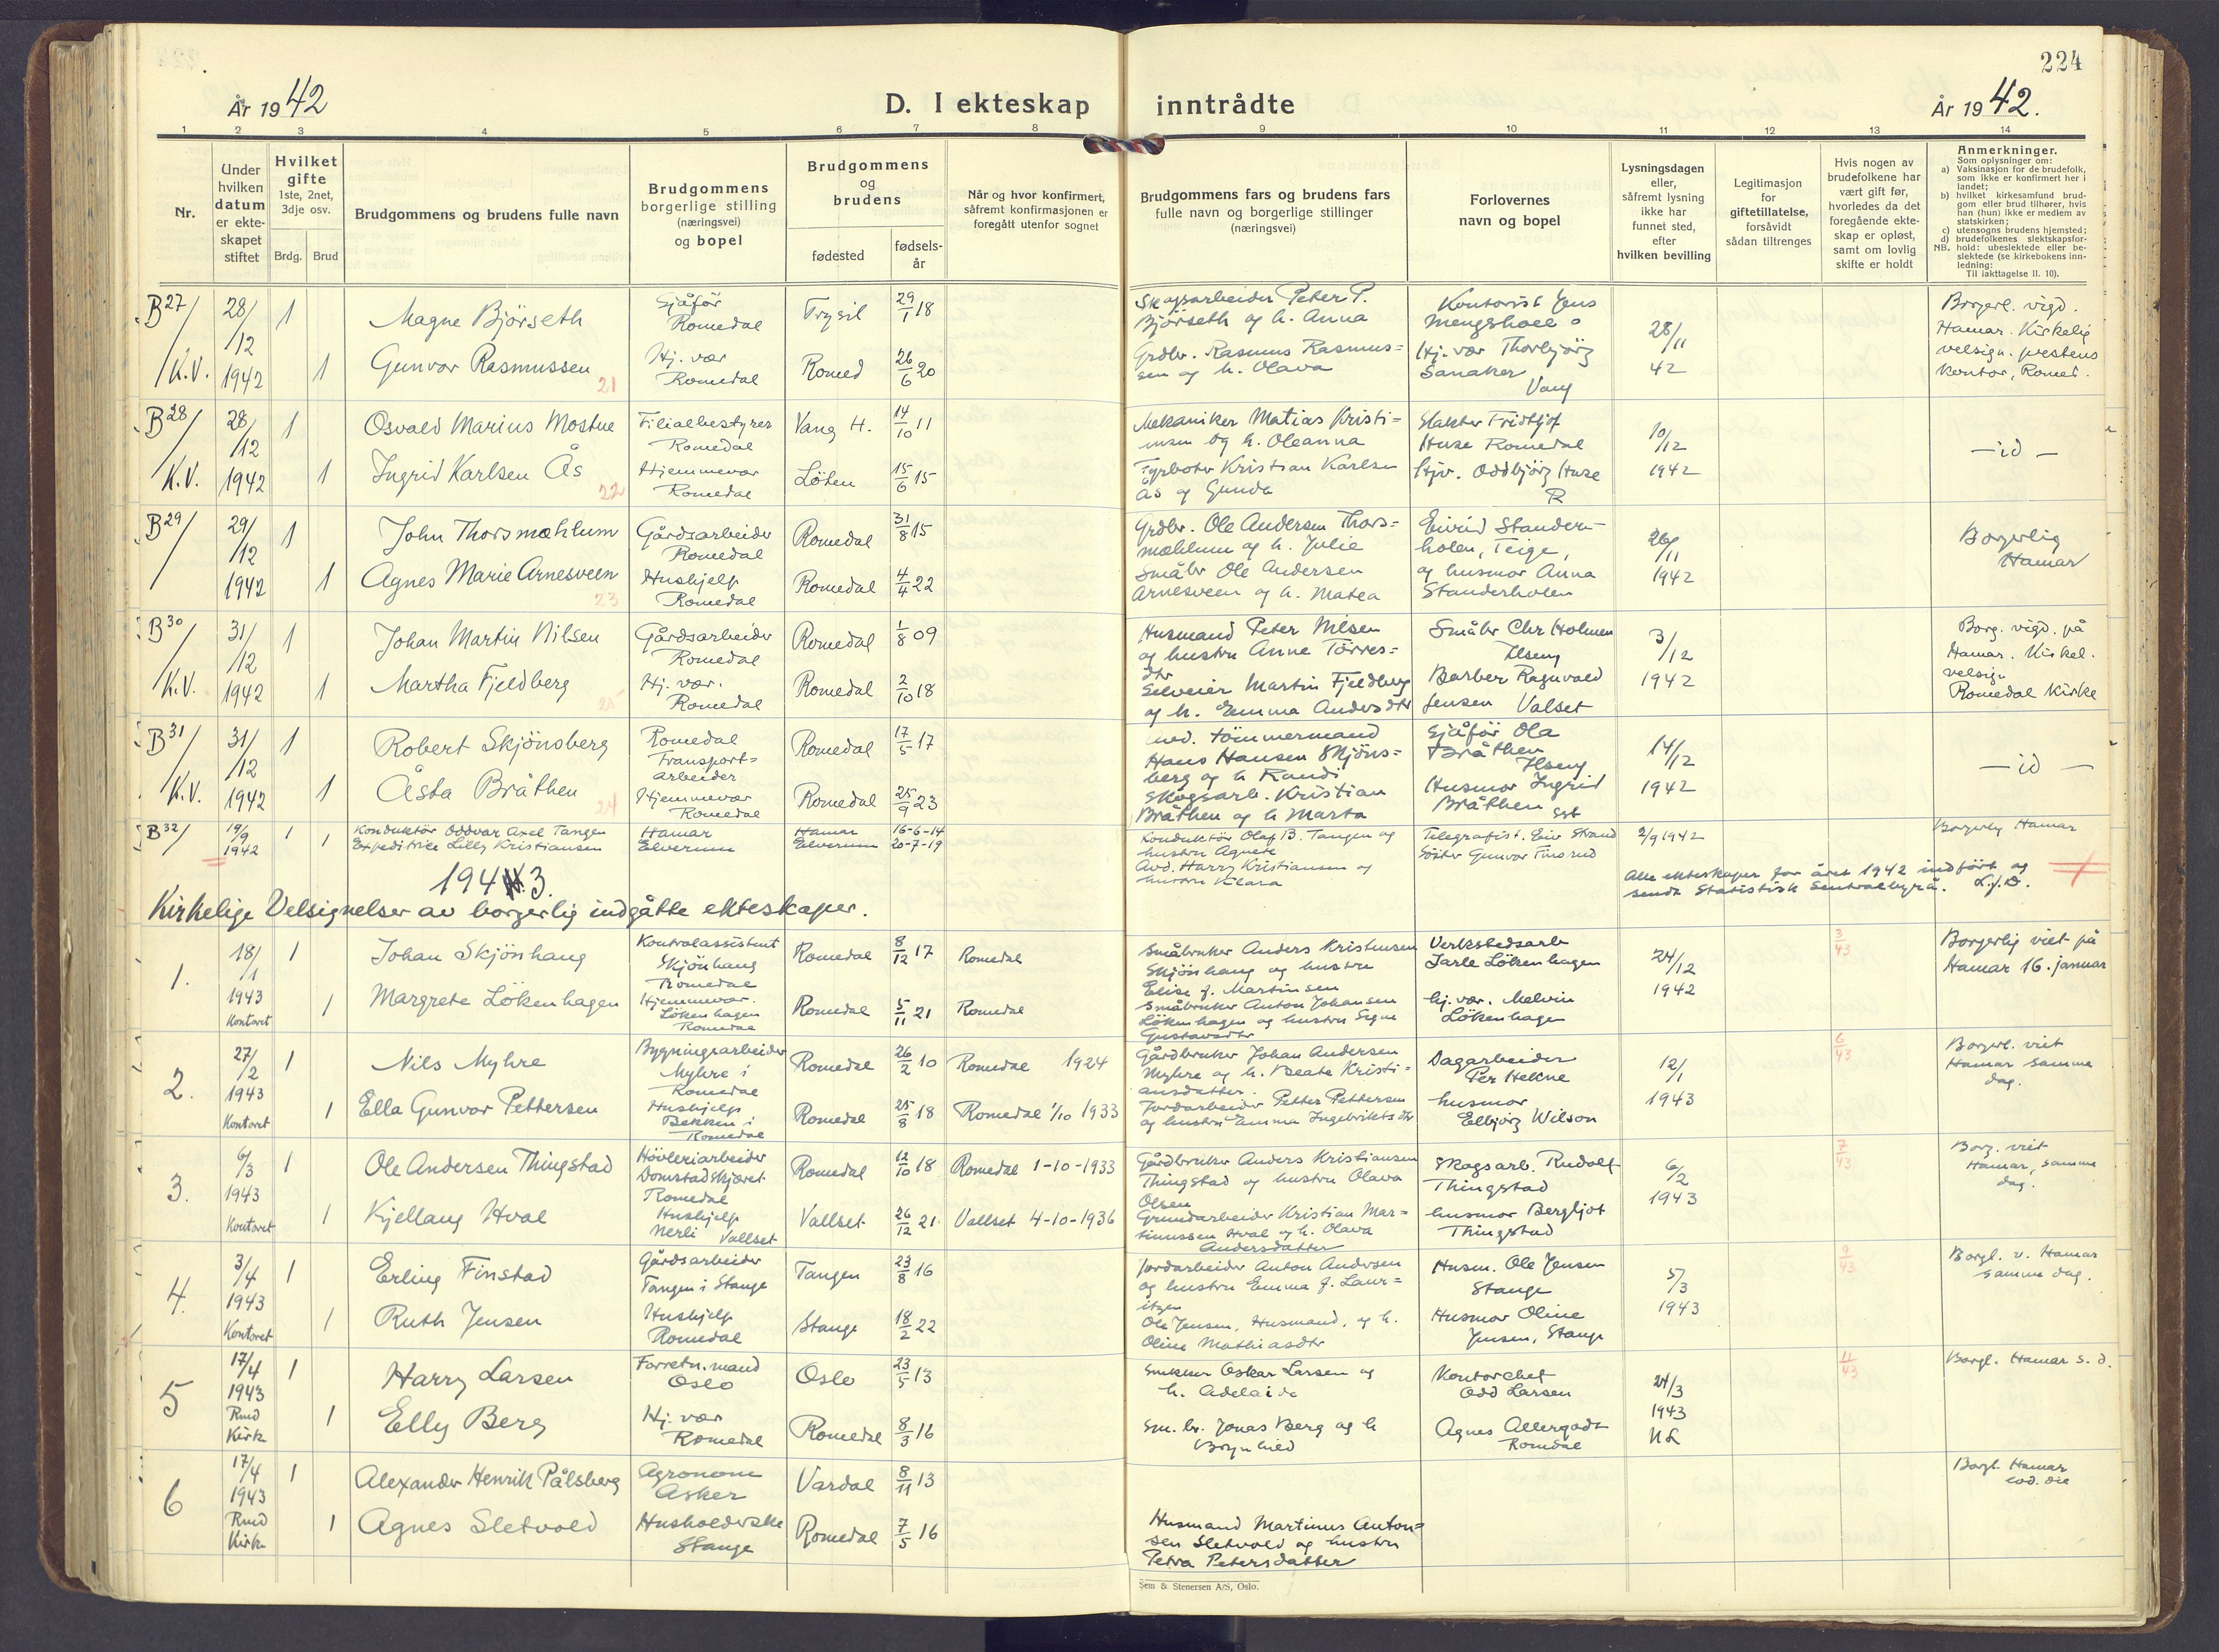 224
År 1942
D. I ekteskap inntrådte
År 1942.
1 2 3 4 5 6 7 8 9 10 11 12 13 14
Nr.
Under hvilken datum er ekteskapet stiftet
Hvilket gifte 1ste, 2net, 3dje osv.
Brdg. Brud
Brudgommens og brudens fulle navn
Brudgommens borgerlige stilling (næringsvei) og bopel
Brudgommens og brudens
fødested
fødselsår
Når og hvor konfirmert, såfremt konfirmasjonen er foregått utenfor sognet
Brudgommens fars og brudens fars fulle navn og borgerlige stillinger (næringsvei)
Forlovernes navn og bopel
Lysningsdagen eller, såfremt lysning ikke har funnet sted, efter hvilken bevilling
Legitimasjon for giftetillatelse, forsåvidt sådan tiltrenges
Hvis nogen av brudefolkene har vært gift før, hvorledes da det foregående ekteskap er opløst, samt om lovlig skifte er holdt
Anmerkninger.
Som oplysninger om:
a) Vaksinasjon for de brudefolk, som ikke er konfirmert her i landet;
b) hvilket kirkesamfund brudgom eller brud tilhører, hvis han (hun) ikke er medlem av statskirken;
c) utensogns brudens hjemsted;
d) brudefolkenes slektskapsforhold: ubeslektede eller beslektede (se kirkebokens innledning:
NB. Til iakttagelse II. 10).
B27/ 28/12 1942 1 Magne Björseth Sjåför Romedal Trysil 29/1 18 Skogsarbeider Peter P. Björseth og h. Anna Kontorist Jens Mengshoel 28/11 42 Borgerl. vigd. Hamar. Kirkelig velsign. prestens kontor, Romed.
K.V. 1 Gunvor Rasmussen 21 Hj. vær Romedal Romed 26/6 20 Grdbr. Rasmus Rasmussen og h. Olava Hj. vær Thorbjörg Sanaker Vang
B28/ 28/12 1942 1 Osvald Marius Mostue Filialbestyrer Romedal Vang H. 14/10 11 Mekaniker Matias Kristi= og h. Oleanna Slakter Fridtjof Huse Romedal 10/12 1942 — id —
K.V. 1 Ingrid Karlsen Ås 22 Hjemmevær Romedal Löten 15/6 15 Fyrböter Kristian Karlsen Ås og Gunda Hjv. Oddbjörg Huse R
B29/ 29/12 1942 1 John Thorsmæhlum Gårdsarbeider Romedal Romedal 31/8 15 Grdbr. Ole Andersen Thors= mæhlum og h. Julie Eivind Standerholen, Teige, 26/11 1942 Borgerlig Hamar
1 Agnes Marie Arnesveen 23 Hushjelp Romedal Romedal 4/4 22 Småbr Ole Andersen Arnesveen og h. Matea og husmor Anna Standerholen
B30/ 31/12 1942 1 Johan Martin Nilsen Gårdsarbeider Romedal Romedal 1/8 09 Husmand Peter Nilsen og hustru Anne Törres= dtr Småbr Chr Holmen Ilseng 3/12 1942 Borg. vigd. på Hamar. Kirkel. velsign Romedal Kirke
K.V. 1 Martha Fjeldberg 25 Hj. vær. Romedal Romedal 2/10 18 Selveier Martin Fjeldberg og h. Emma Andersdtr Barber Ragnvald Jensen Valset
B31/ 31/12 1942 1 Robert Skjönsberg Romedal Transport= arbeider Romedal 17/5 17 Avd. tömmermand Hans Hansen Skjöns= berg og h Randi Sjåför Ola Bråthen Ilseng 14/12 1942 — id —
K.V. 1 Åsta Bråthen 24 Hjemmevær Romedal Romedal 25/9 23 Skogsarb. Kristian Bråthen og h Marta Husmor Ingrid Bråthen sst
B32/ 19/9 1942 1 1 Konduktör Oddvar Axel Tangen Hamar Hamar 16-6-14 Konduktör Olaf B. Tangen og hustru Agnete Telegrafist. Eiv Strand 2/9 1942 Borgerlig Hamar
Expeditrice Lilly Kristiansen Elverum Elverum 20-7-19 Avd. Harry Kristiansen og hustru Klara Söster Gunvor Finsrud
Alle ekteskaper for året 1942 indført og sendt Statistisk Sentralbyrå.
1943.
Kirkelige Velsignelser av borgerlig indgåtte ekteskaper.
1. 18/1 1943 Kontoret 1 Johan Skjönhaug Kontrolassistent Skjönhaug Romedal Romedal 8/12 17 Romedal Småbruker Anders Kristensen Skjönhaug og hustru Elise f. Martinsen Verkstedsarb Jarle Lökenhagen 24/12 1942 3/43 Borgerlig viet på Hamar 16. januar
1 Margrete Lökenhagen Hjemmevær. Lökenhagen Romedal Romedal 5/11 21 Romedal Småbruker Anton Johansen Lökenhagen og hustru Signe Gustavsdtr hj. vær. Melvin Lökenhagen
2. 27/2 1943 Kontoret 1 Nils Myhre Bygningsarbeider Myhre i Romedal Romedal 26/2 10 Romedal 1924 Gårdbruker Johan Andersen Myhre og h. Beate Kristi= ansdatter. Dagarbeider Per Hekne 12/1 1943 6/43 Borgerl. viet Hamar samme dag.
1 Ella Gunvor Pettersen Hushjelp Bekken i Romedal Romedal 25/8 18 Romedal 1/10 1933 Jordarbeider Petter Pettersen og hustru Emma Ingebriktsdtr husmor Elbjörg Wilson
3. 6/3 1943 Kontoret 1 Ole Andersen Thingstad Hövleriarbeider Domstadskjæret Romedal Romedal 12/10 18 Romedal 1-10-1933 Gårdbruker Anders Kristiansen Thingstad og hustru Olava Olsen Skogsarb. Rudolf Thingstad 6/2 1943 7/43 Borg. viet Hamar, samme dag.
1 Kjellaug Hval Hushjelp Nerli Vallset Vallset 26/12 21 Vallset 4-10-1936 Grundarbeider Kristian Mar= tinussen Hval og h. Olava Andersdatter husmor Bergljot Thingstad
4. 3/4 1943 Kontoret 1 Erling Finstad Gårdsarbeider Tangen i Stange Tangen 23/8 16 Jordarbeider Anton Andersen og hustru Emma f. Laur= itzen Husm. Ole Jensen Stange 5/3 1943 9/43 Borgl. v. Hamar samme dag.
1 Ruth Jensen Hushjelp Romedal Stange 18/2 22 Ole Jensen, Husmand, og h. Oline Mathiasdtr Husmor Oline Jensen, Stange
5 17/4 1943 Rmd Kirk 1 Harry Larsen Forretn. mand Oslo Oslo 23/5 13 Snekker Oskar Larsen og h. Adelaide Kontorchef Odd Larsen 24/3 1943 11/43 Borgl. Hamar s. d.
1 Elly Berg Hj. vær Romedal Romedal 8/3 16 Sm. br. Jonas Berg og h Brynhild Agnes Allergodt Romedal
6 17/4 1943 Rmd Kirk 1 Alexander Henrik Pålsberg Agronom Asker Vardal 8/11 13 Borgl. Hamar eod. die
1 Agnes Sletvold Husholderske Stange Romedal 7/5 16 Husmand Martinus Anton= sen Sletvold og hustru Petra Petersdatter
Sem & Stenersen A/S, Oslo.